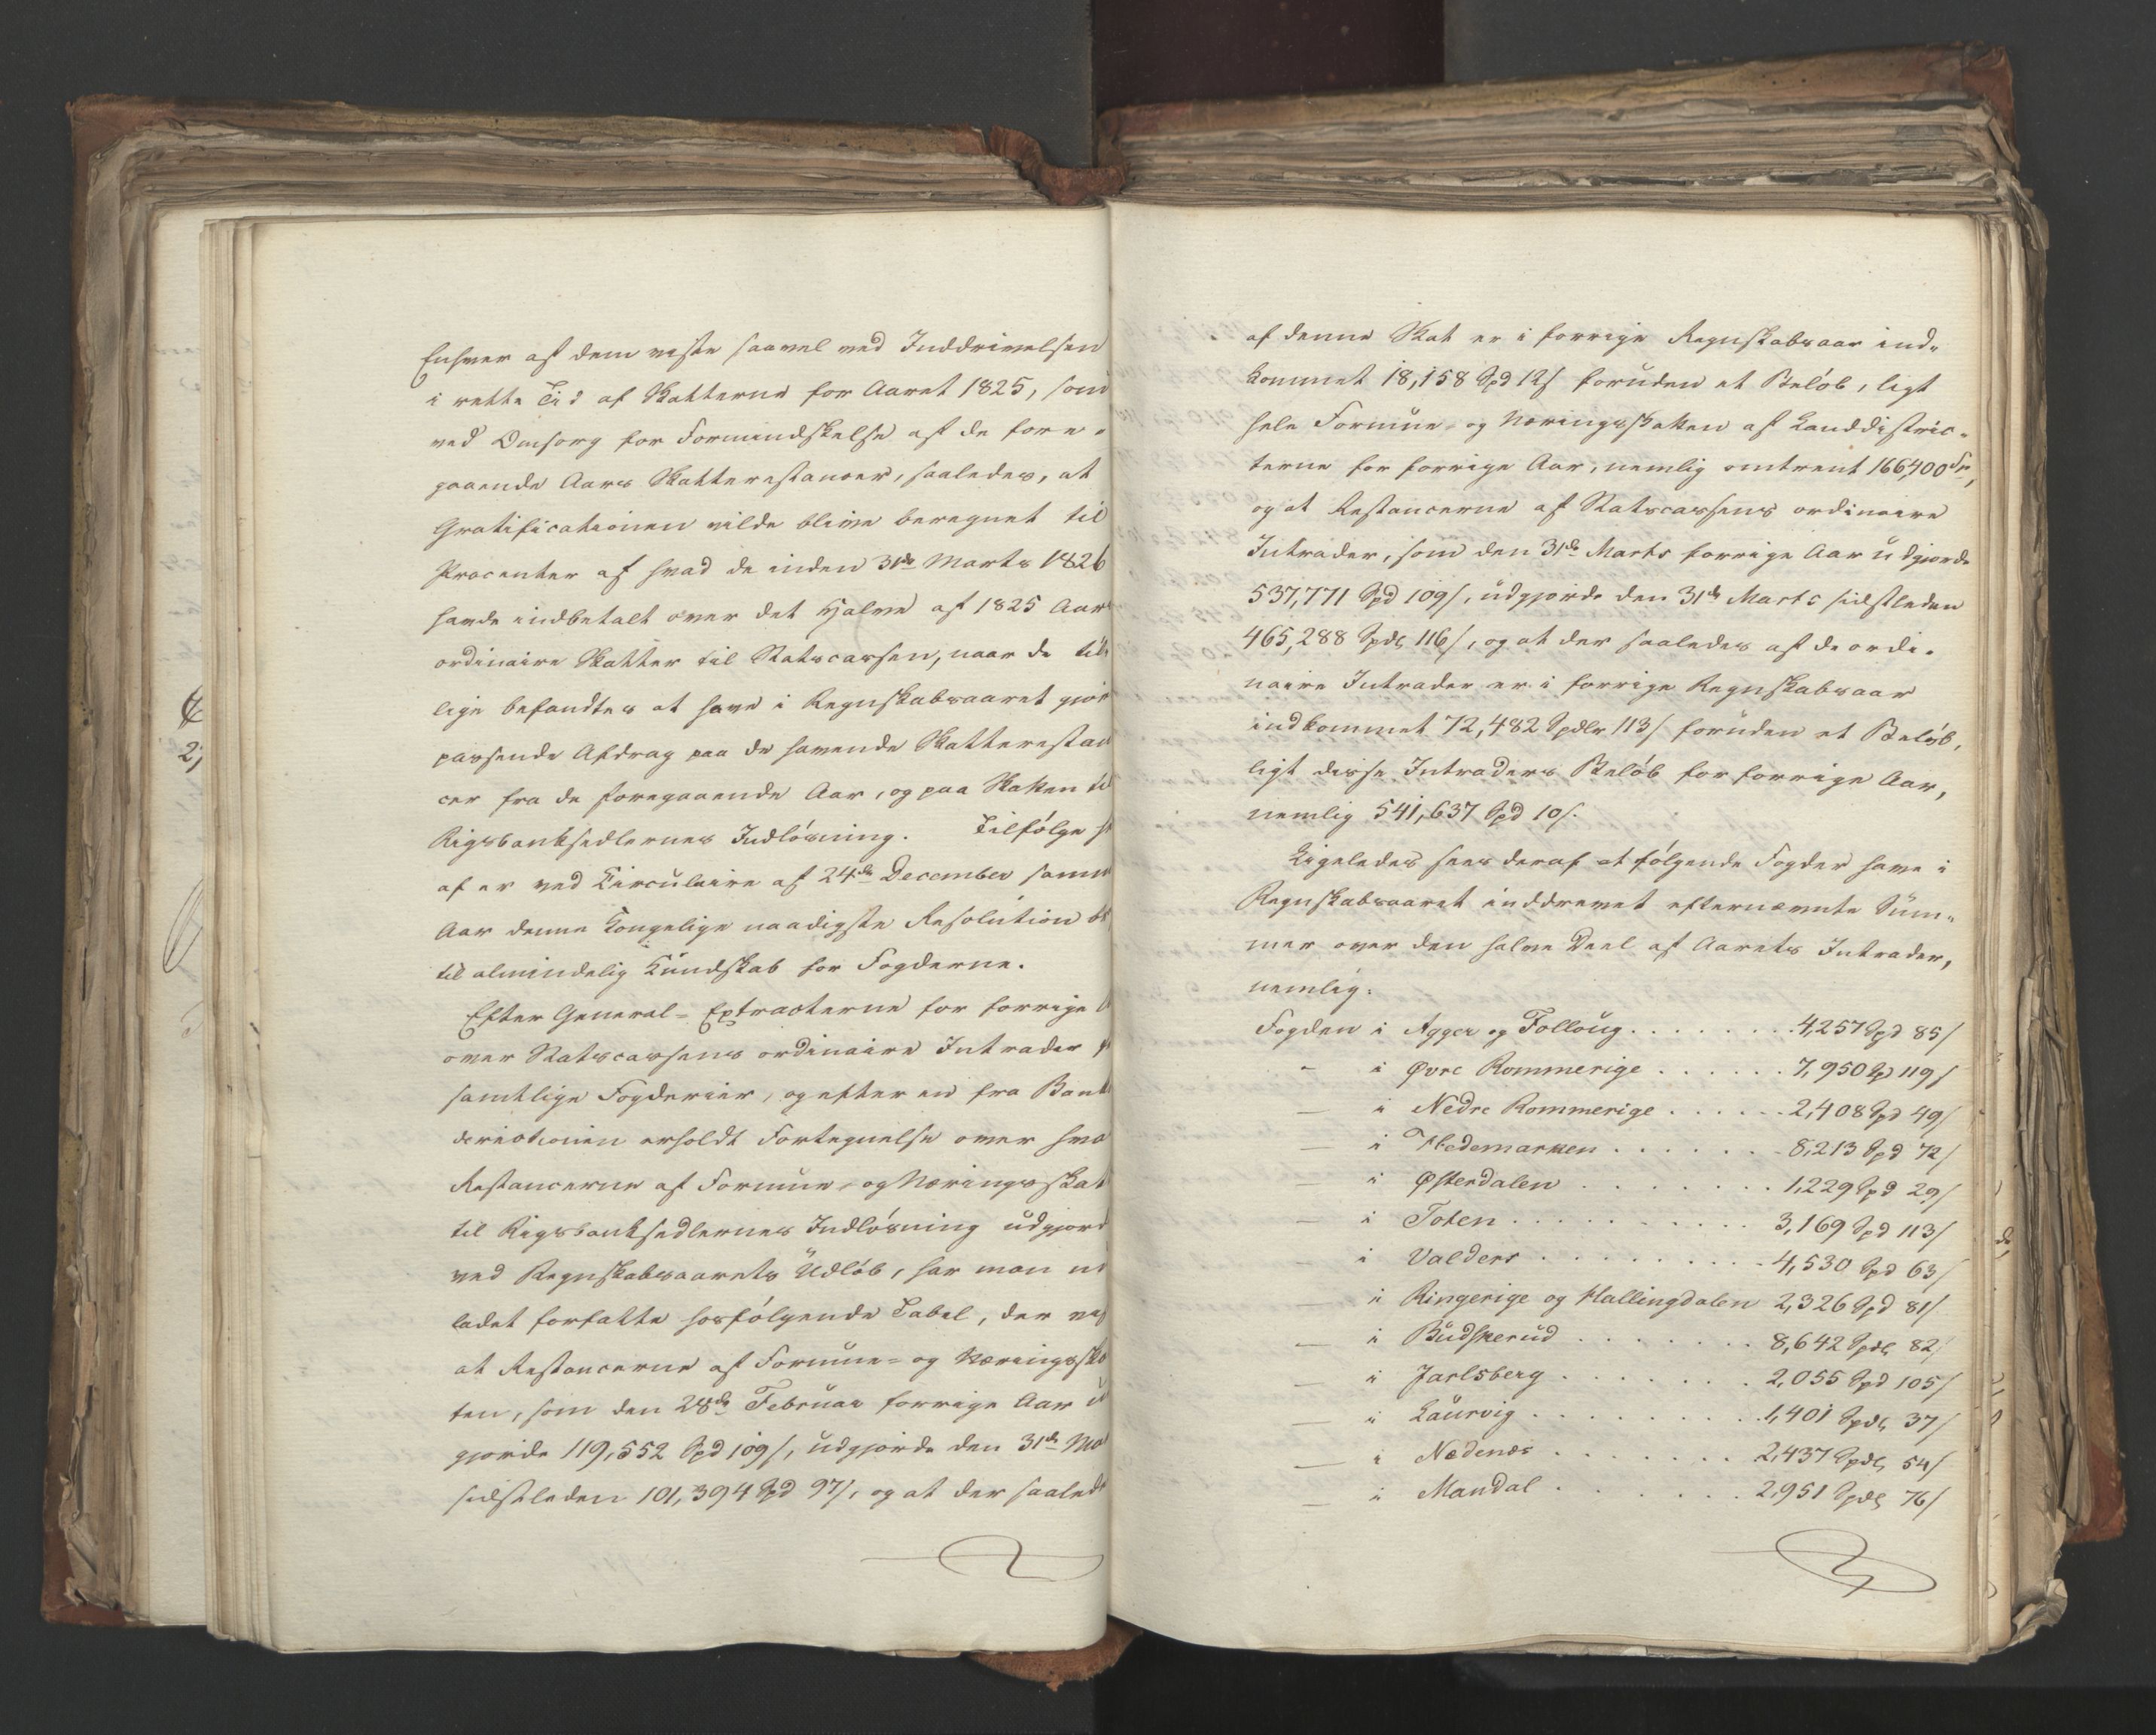 Enhver af dem viste saavel ved Inddrivelsen
i rette Tid af Skatterne for Aaret 1825, som
ved Omsorg for Formindskelse af de fore-
gaaende Aars Skatterestancer, saaledes, at
Gratificationen vilde blive beregnet til
Procenter af hvad de inden 31de Marts 1826
havde indbetalt over det Halve af 1825 Aars
ordinaire Skatter til Statscassen, naar de til-
lige befandtes at have i Regnskabsaaret gjor
passende Afdrag paa de havende Skatterestan
cer fra de foregaaende Aar, og paa Skatten til
Rigsbanksedlernes Indløsning. Tilfølge
af er ved Circulaire af 24de December samme
Aar denne Kongelige naadigste Resolution
til almindelig Kundskab for Fogderne.
Efter General-Extracterne for forrige
over Statscassens ordinaire Intrader
samtlige Fogderier, og efter en fra Bank
directionen erholdt Fortegnelse over hva
Restancerne af Formue- og Næringsskat
til Rigsbanksedlernes Indløsning udgjord
ved Regnskabsaarets Udløb, har man
ladet forfatte hosfølgende Tabel, der
at Restancerne af Formue- og Næringsska
ten, som den 28de Februar forrige Aar
gjorde 119,552 Spd 109/, udgjorde den 31de Ma
sidstleden 101,394 Spd 97/, og at der saalede
af denne Skat er i forrige Regnskabsaar ind-
kommet 18,158 Spd 12/ foruden et Beløb, ligt
hele Formue- og Næringsskatten af Landdistric-
terne for forrige Aar, nemlig omtrent 166,400 Sp,
og at Restancerne af Statscassens ordinaire
Intrader, som den 31de Marts forrige Aar udgjorde
537,771 Spd 109/, udgjorde den 31de Marts sidstleden
465,288 Spdlr 116/, og at der saaledes af de ordi-
naire Intrader er i forrige Regnskabsaar
indkommet 72,482 Spdlr 113/ foruden et Beløb,
ligt disse Intraders Beløb for forrige Aar,
nemlig 541,637 Spd 10/.
Ligeledes sees deraf at følgende Fogder have i
Regnskabsaaret inddrevet efternævnte Sum-
mer over den halve Deel af Aarets Intrader,
nemlig:
Fogden i Agger og Folloug . . . . . . . 4,257 Spd 85/
- i Øvre Rommerige . . . . . . 7,950 Spd 119/
— i Nedre Rommerige . . . . . . 2,408 Spd 49/
— i Hedemarken . . . . . . . 8,213 Spd 72/
— i Østerdalen . . . . . . . 1,229 Spd 29/
— i Toten . . . . . . . . . . 3,169 Spd 113/
— i Valders . . . . . . . . 4,530 Spd 63/
— i Ringerige og Hallingdalen 2,326 Spd 81/
— i Budskerud . . . . . . . 8,642 Spdlr 82/
— i Jarlsberg . . . . . . . 2,055 Spd 105/
— i Laurvig . . . . . . . . 1,401 Spdlr 37/
— i Nedenæs . . . . . . . 2,437 Spdlr 54/
— i Mandal . . . . . . . 2,951 Spdlr 76/